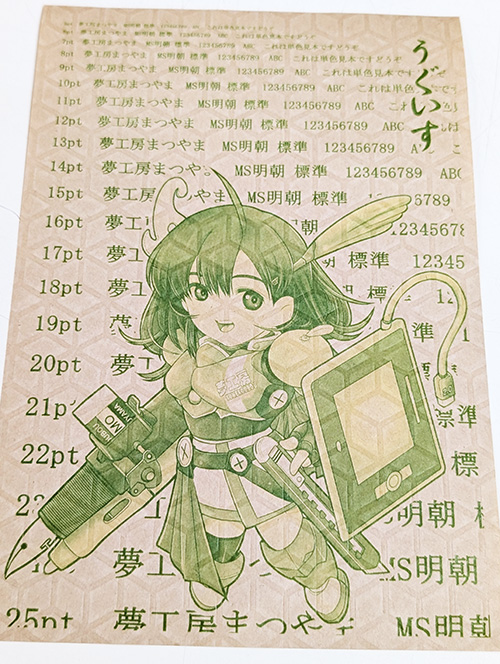 うぐいす
7pt 夢工房まつやま MS明朝 標準 123456789 ABC これは単色見本ですどうぞ
8pt 夢工房まつやま MS明朝 標準 123456789 ABC これは単色見本ですどうぞ
9pt 夢工房まつやま MS明朝 標準 123456789 ABC これは単色見本です
10pt 夢工房まつやま MS明朝 標準 123456789 ABC これは単色見
11pt 夢工房まつやま MS明朝 標準 123456789 ABC これ
12pt 夢工房まつやま MS明朝 標準 123456789 ABC こ
13pt 夢工房まつやま MS明朝 標準 123456789 ABC
14pt 夢工房まつや MS明朝 標準 123456789 ABC
15pt 夢工房まつやま MS明朝 標準 123456789
16pt 夢工房 MS明朝 標 12345678
17pt 夢工房 標準 12345
18pt 夢工 標準 123
19pt 夢工 標準
20pt 夢工 標準
21pt 夢 標準
22pt 夢 標
明朝
夢工 MS明朝
25pt 夢工房まつやま MS明